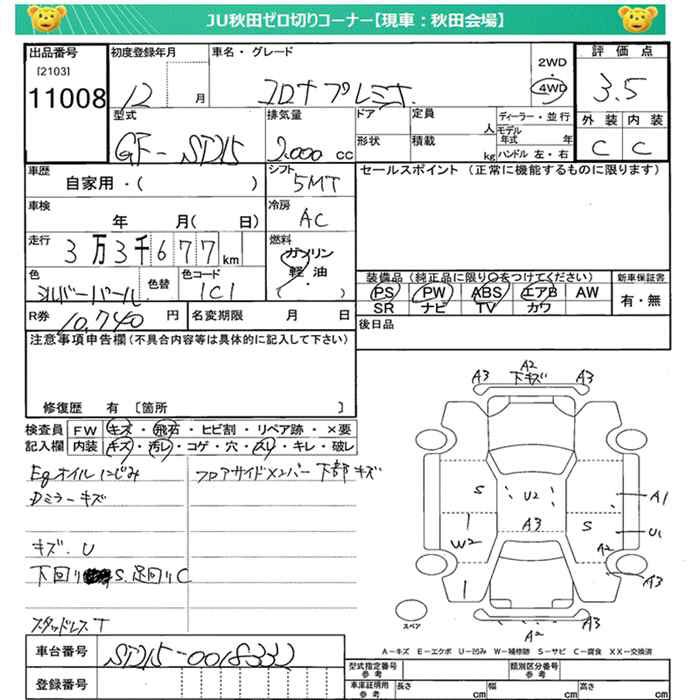 JU秋田ゼロ切りコーナー【現車：秋田会場】
出品番号 初度登録年月 車名・グレード 2WD・4WD 評価点
[2103]
11008 12 月 コロナプレミオ 3.5
型式 排気量 ドア 定員 人 ディーラー・並行 外装 内装
GF-ST215 2,000 cc 形状 積載 kg モデル年式 年 ハンドル 左・右 C C
車歴 シフト セールスポイント（正常に機能するものに限ります）
自家用・（ ） 5MT
車検 冷房
年 月（ 日） AC
走行 燃料
3万3千677 km ガソリン 軽油・（ ）
装備品（純正品に限り○をつけてください） 新車保証書
色 色替 色コード PS PW ABS エアB AW 有・無
シルバーパール 1C1 SR ナビ TV カワ
R券 10,740 円 名変期限 月 日 後日品
注意事項申告欄（不具合内容等は具体的に記入して下さい）
修復歴 有 〔箇所 〕
検査員 FW キズ・飛石・ヒビ割・リペア跡・×要
記入欄 内装 キズ・汚レ・コゲ・穴・スレ・キレ・破レ
Egオイルにじみ フロアサイドメンバー下部キズ
Dミラーキズ
キズ、U
下回り S、足回りC
スタッドレスT
A3 A2 下キズ A3
S U2 A1
A3 S U1
W2 A2
A3
スペア A3 A2 A3
A-キズ E-エクボ U-凹み W-補修跡 S-サビ C-腐食 XX-交換済
車台番号 ST215-0018332
登録番号
型式指定番号 参考 類別区分番号 参考
車庫証明用 参考 長さ cm 幅 cm 高さ cm